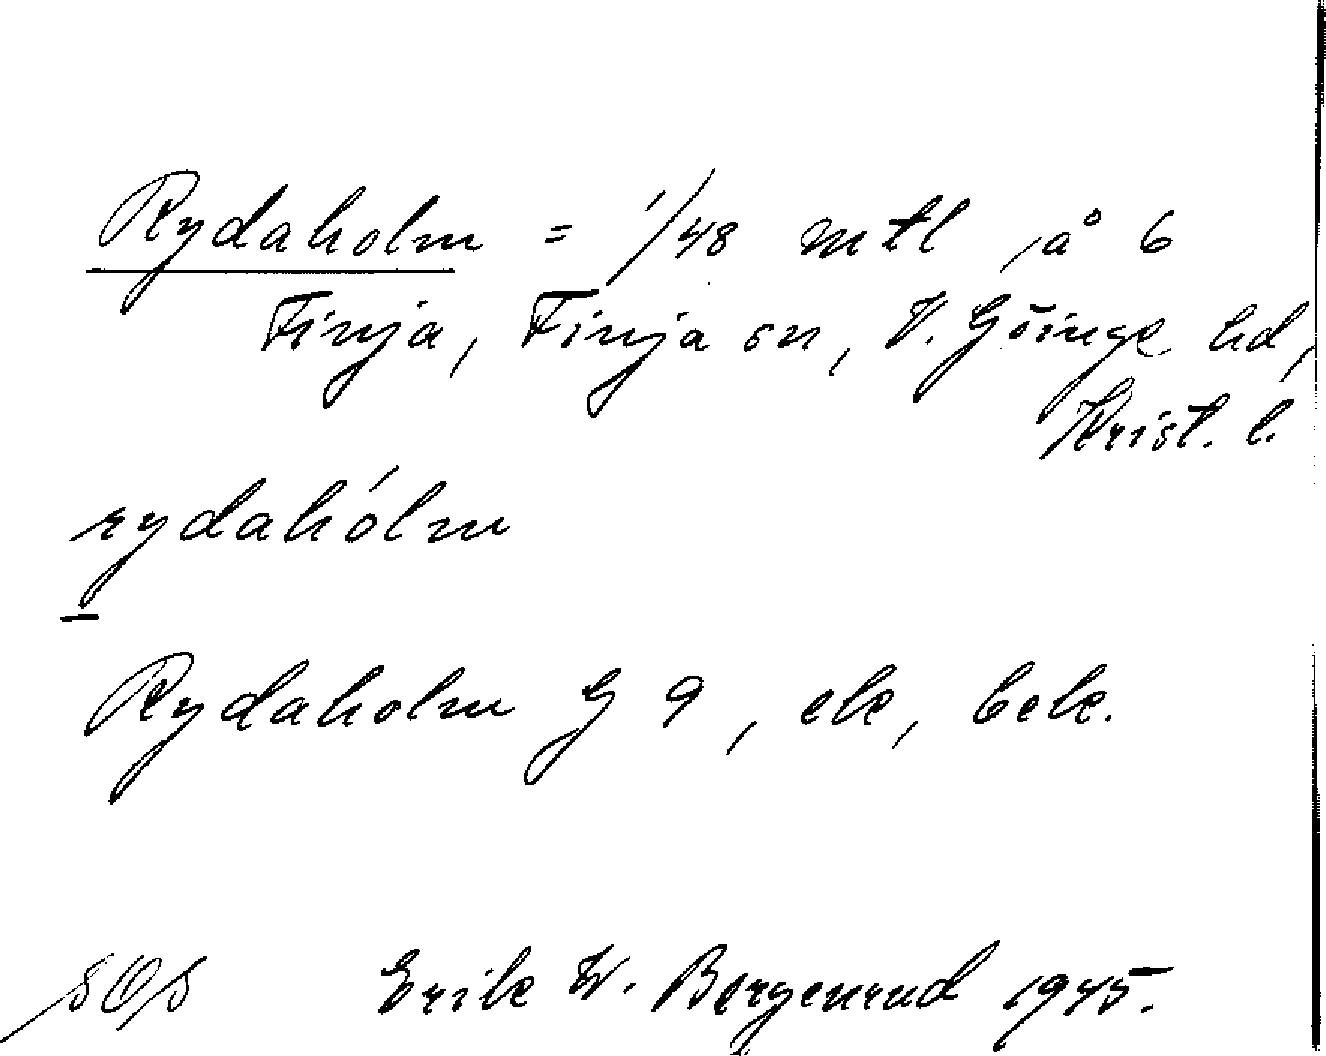 Rydaholm = 1/48 mtl å 6
Finja, Finja sn, V. Göinge hd,
Krist. l.
rydahólm
Rydaholm G 9, ek, bek.
SOS Erik W. Borgenrud 1945.